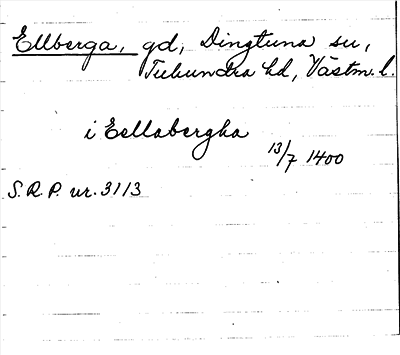 Ellberga, gd, Dingtuna sn,
Tuhundra hd, Västm. l.
i Eellabergha
13/7 1400
S.R.P. nr. 3113